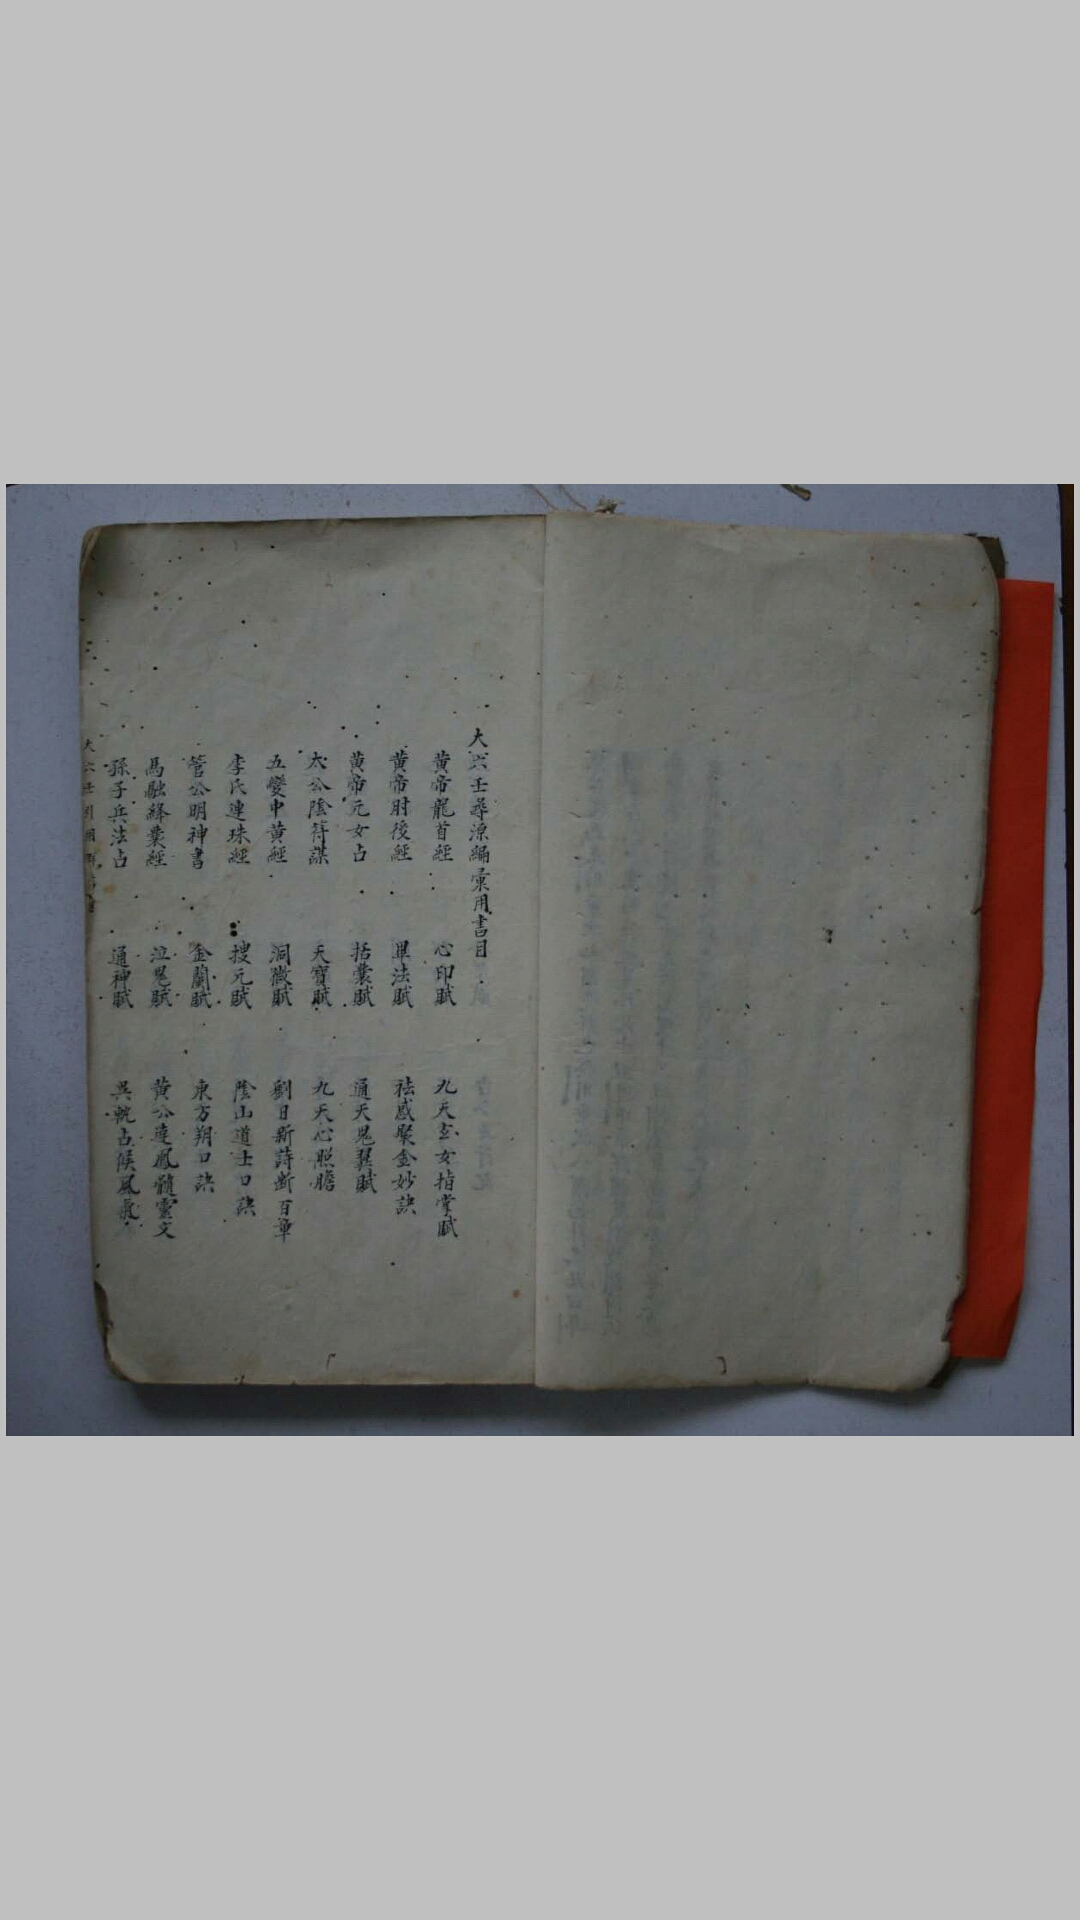 大六壬尋源編彙用書目
黄帝龍首經 心印賦 九天玄女指掌賦
黄帝肘後經 畢法賦 祛惑聚金妙訣
黄帝元女占 括囊賦 通天鬼翼賦
太公陰符謀 天寶賦 九天心照膽
五變中黄經 洞微賦 劉日新詩断百章
李氏連珠經 搜元賦 陰山道士口訣
管公明神書 金蘭賦 東方朔口訣
馬融絳囊經 泣鬼賦 黄公達鳳髓靈文
孫子兵法占 通神賦 吳軏占候風氣
大六壬引用